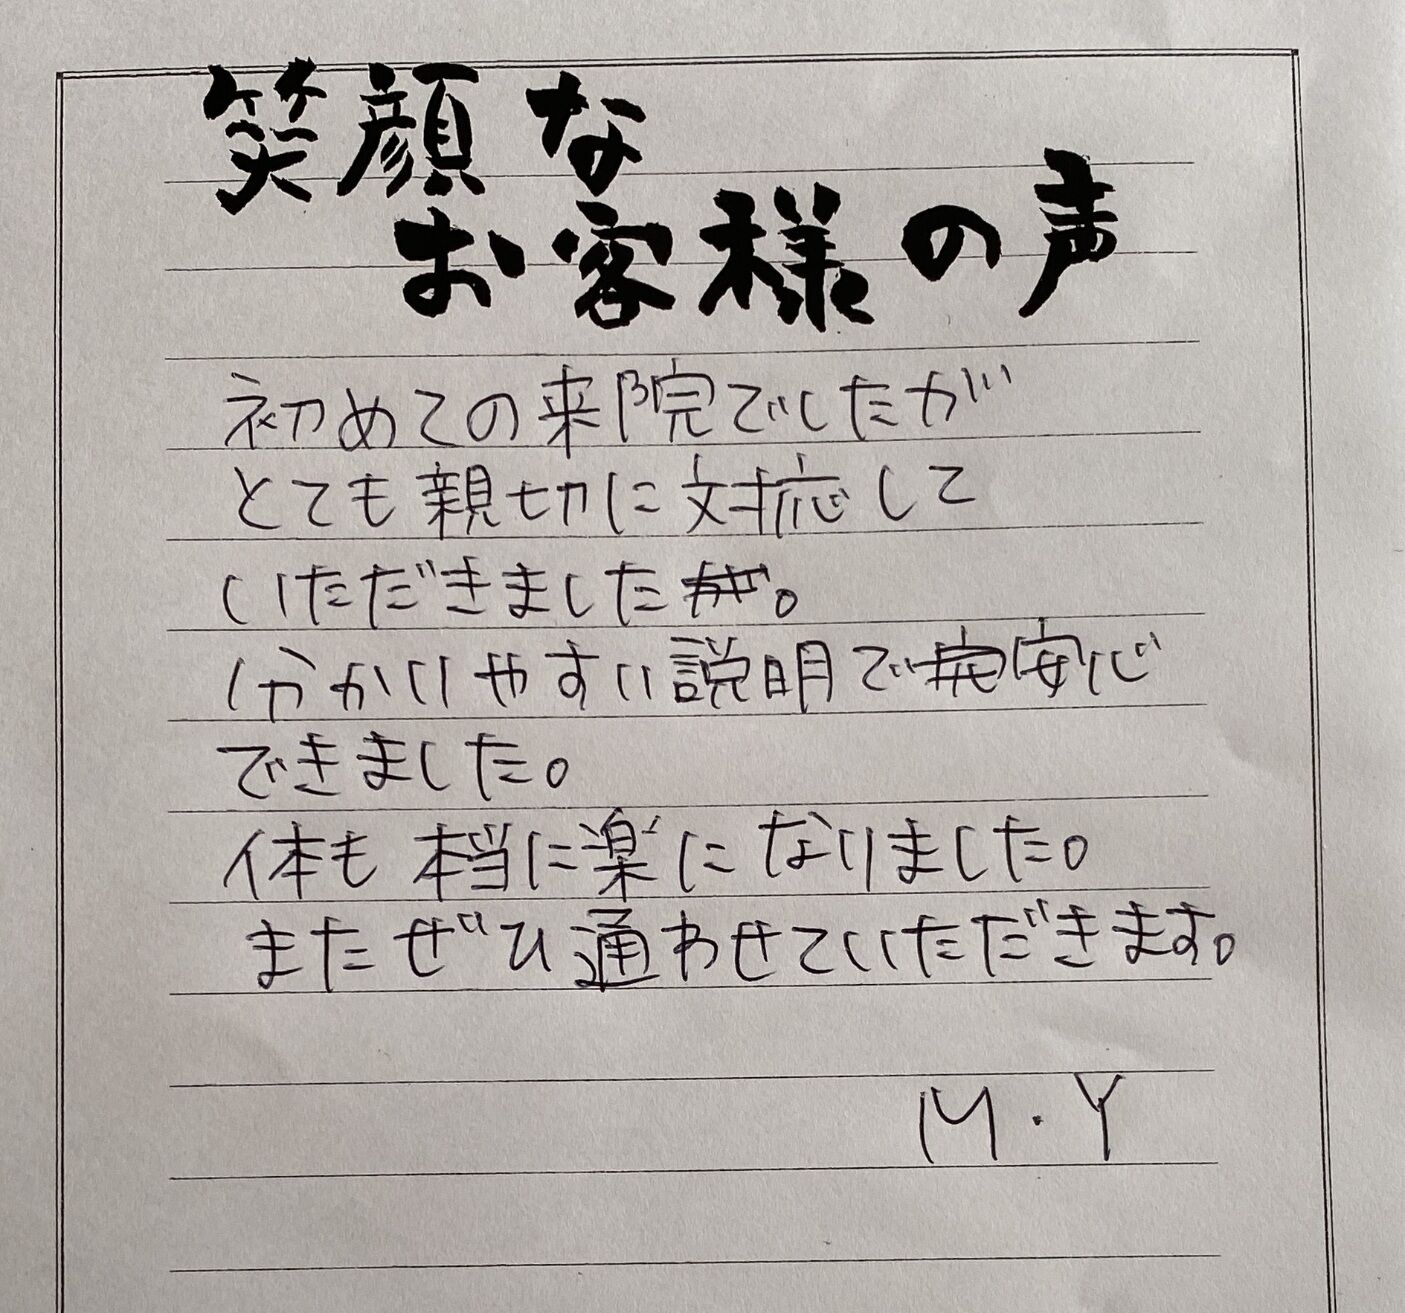 笑顔な
お客様の声
初めての来院でしたが
とても親切に対応して
いただきました。
分かりやすい説明で安心
できました。
体も本当に楽になりました。
またぜひ通わせていただきます。
M・Y